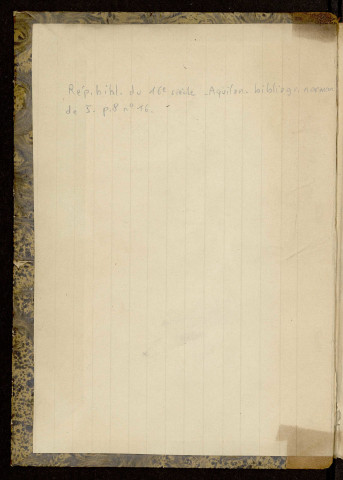 Rép. bibl. du 16e siècle - Aquilon - bibliogr. norman
de 5 - p.8 n° 16.